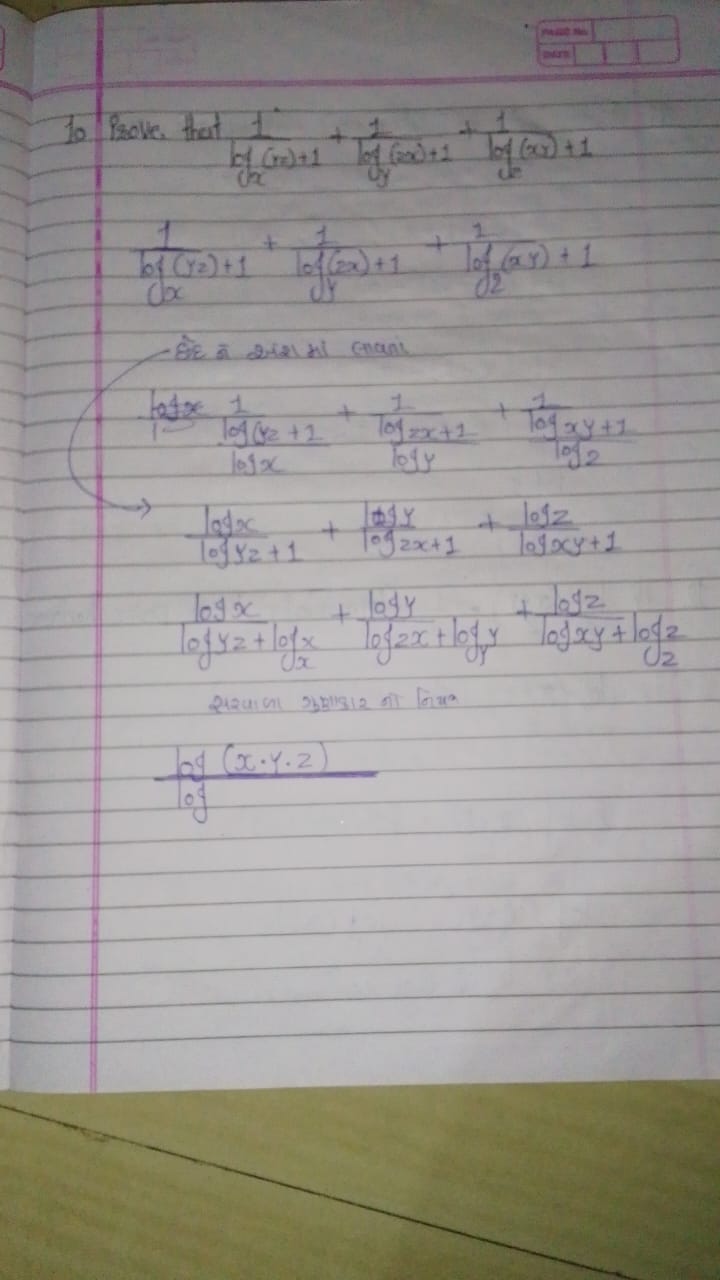 PAGE No.
DATE
To Prove that 1/(log_x (yz)+1) + 1/(log_y (zx)+1) + 1/(log_z (xy)+1)
1/(log_x (yz)+1) + 1/(log_y (zx)+1) + 1/(log_z (xy)+1)
છેદ ને અંશ માં
1/((log(yz+1)/(log x)) + 1/((log zx+1)/(log y)) + 1/((log xy+1)/(log z))
log x/(log yz+1) + log y/(log zx+1) + log z/(log xy+1)
log x/(log yz+log_x x) + log y/(log zx+log_y y) + log z/(log xy+log_z z)
સરવાળા ગુણાકાર નો નિયમ
log (x·y·z)
log